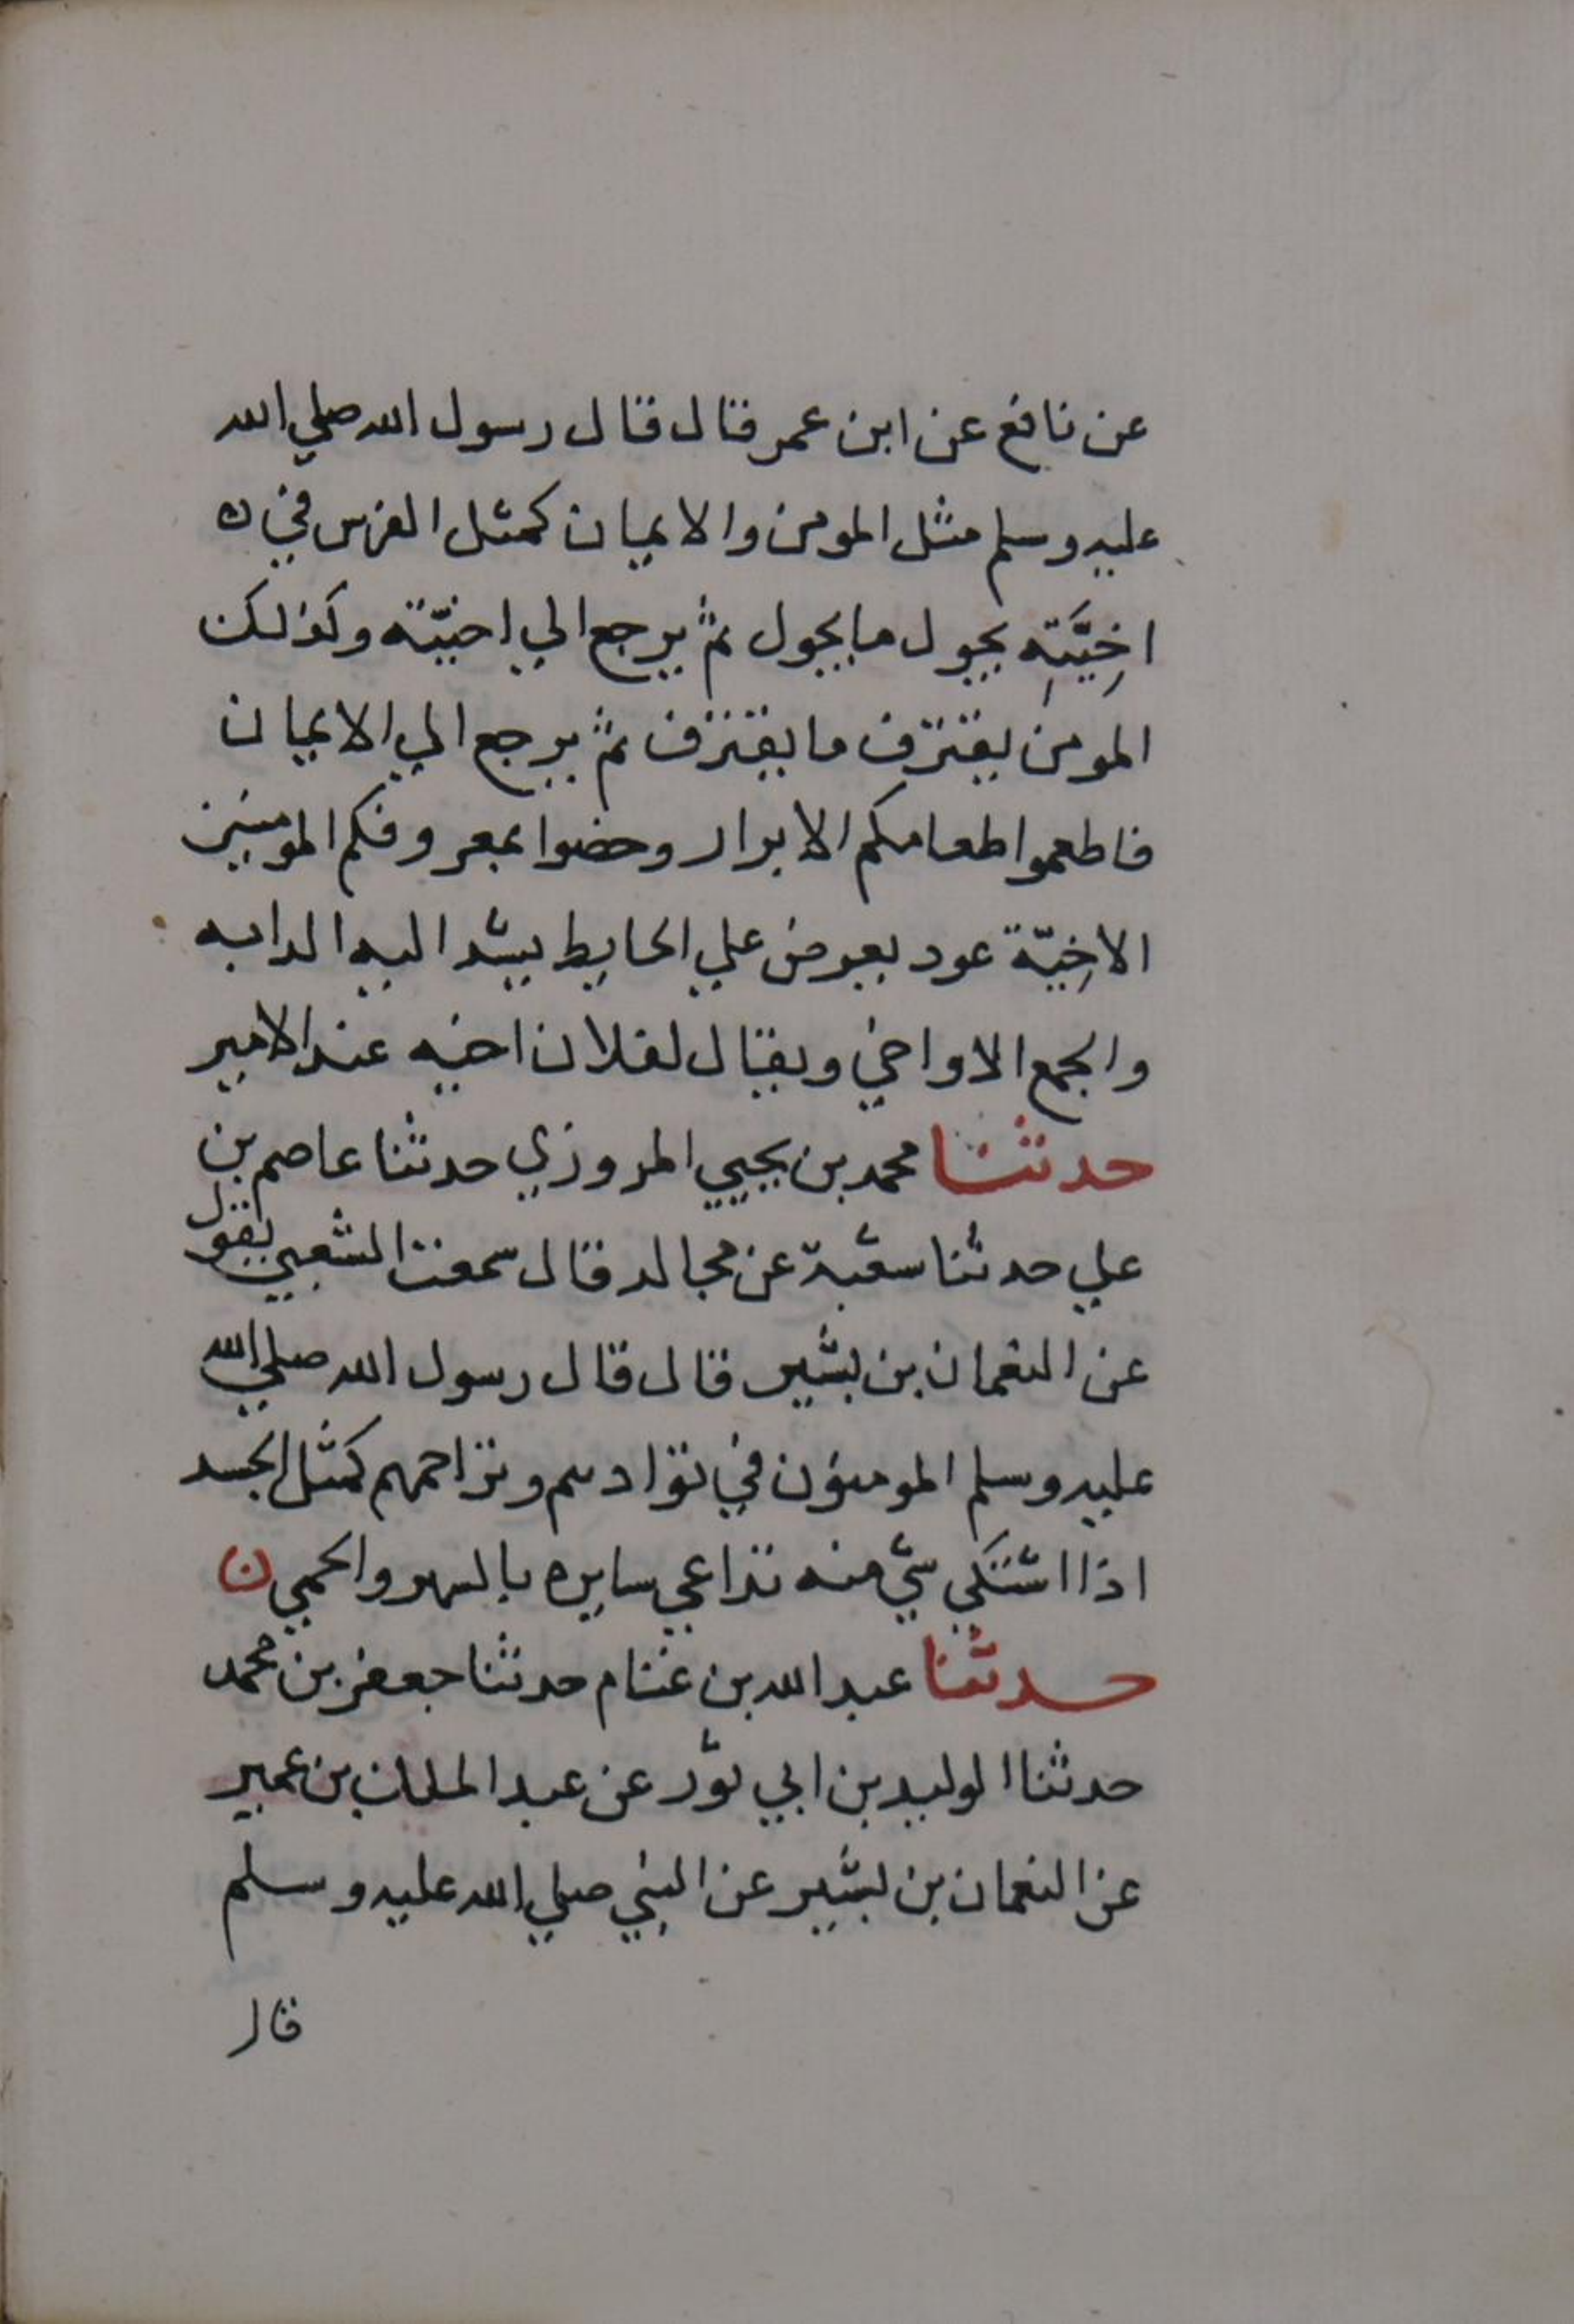 عن نافع عن ابن عمر قال قال رسول الله صلي الله
عليه وسلم مثل المومن والايمان كمثل الفرس في ن
اخِيَّتِه يجول ما يجول ثم يرجع الي اخيّته وكذلك
المومن يقترف ما يقترف ثم يرجع الي الايمان
فاطعموا طعامكم الابرار وخصوا بمعروفكم المومنين
الاخِيّة عود يعرض علي الحايط يشد اليه الدابه
والجمع الاواخي ويقال لفلان اخيه عند الامير
حدثنا محمد بن يحيي المروزي حدثنا عاصم بن
علي حدثنا شعبة عن مجالد قال سمعت الشعبي يقول
عن النعمان بن بشير قال قال رسول الله صلي الله
عليه وسلم المومنون في توادهم وتراحمهم كمثل الجسد
اذا اشتكي شي منه تداعي سايره بالسهر والحمي ن
حدثنا عبد الله بن غنام حدثنا جعفر بن محمد
حدثنا الوليد بن ابي ثور عن عبد الملك بن عمير
عن النعمان بن بشير عن النبي صلي الله عليه وسلم
قال